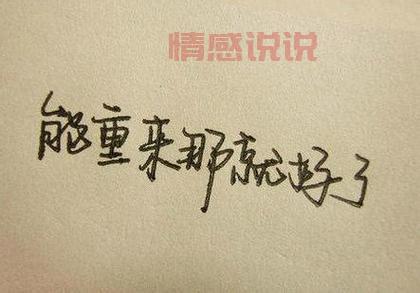 情感说说
能重来那就好了